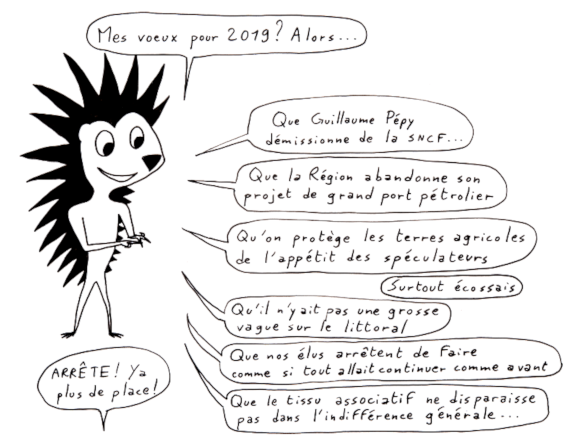 Mes voeux pour 2019? Alors...
Que Guillaume Pépy
démissionne de la SNCF...
Que la Région abandonne son
projet de grand port pétrolier
Qu'on protège les terres agricoles
de l'appétit des spéculateurs
Surtout écossais
Qu'il n'y ait pas une grosse
vague sur le littoral
Que nos élus arrêtent de faire
comme si tout allait continuer comme avant
Que le tissu associatif ne disparaisse
pas dans l'indifférence générale...
ARRÊTE! Ya
plus de place!